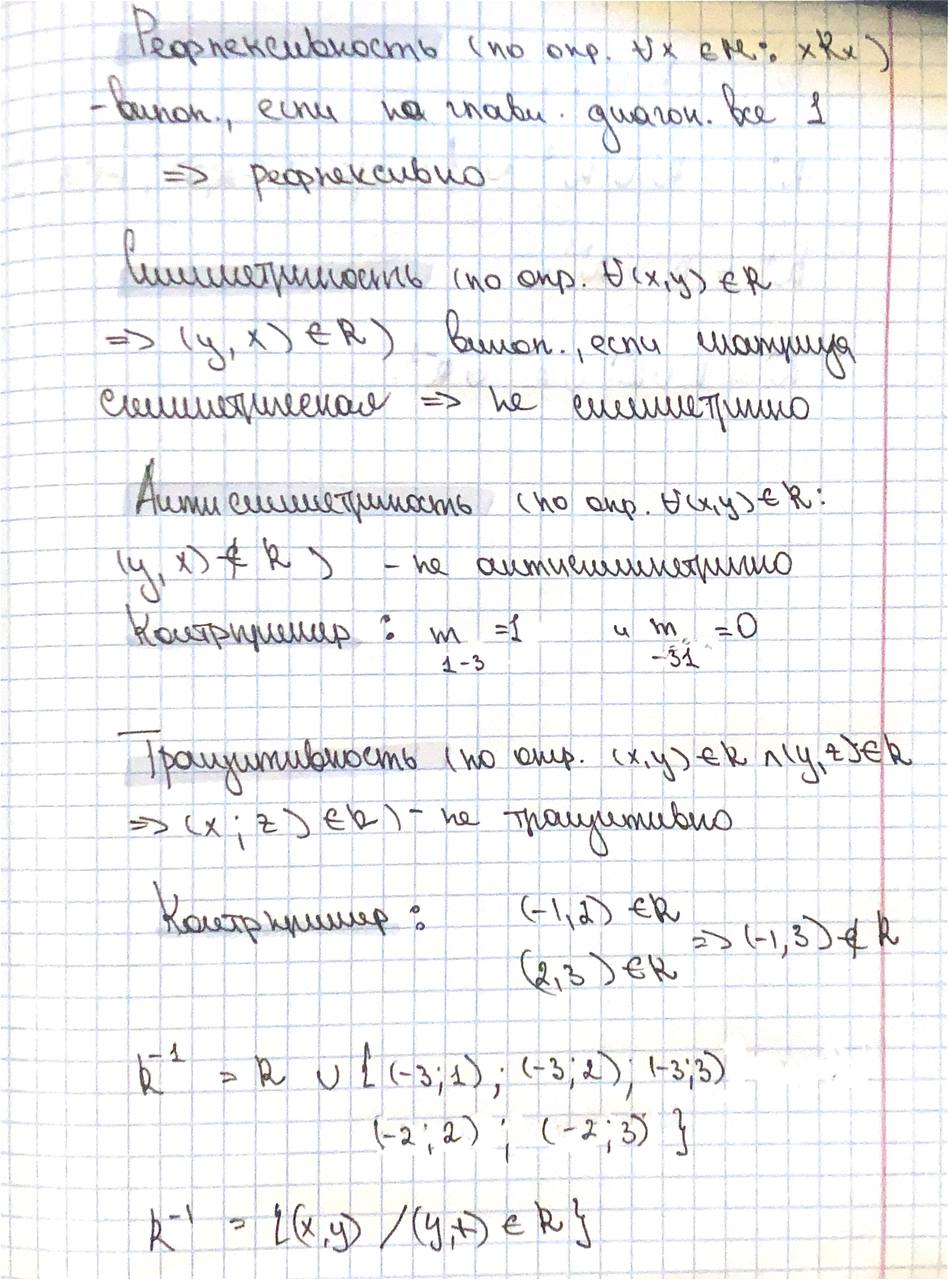 Рефлексивность (по опр. ∀x ∈ M: xRx)
- выпол., если на главн. диагон. все 1
=> рефлексивно
Симметричность (по опр. ∀(x,y) ∈ R
=> (y, x) ∈ R) выпол., если матрица
симметрическая => не симметрично
Антисимметричность (по опр. ∀(x,y) ∈ R:
(y, x) ∉ R) - не антисимметрично
Контрпример: m 1-3 =1 и m -31 =0
Транзитивность (по опр. (x,y) ∈ R ∧ (y,z) ∈ R
=> (x; z) ∈ R) - не транзитивно
Контрпример: (-1,2) ∈ R
(2,3) ∈ R => (-1,3) ∉ R
R⁻¹ = R ∪ {(-3;1); (-3;2); (-3;3)
(-2;2); (-2;3)}
R⁻¹ = {(x,y) / (y,x) ∈ R}